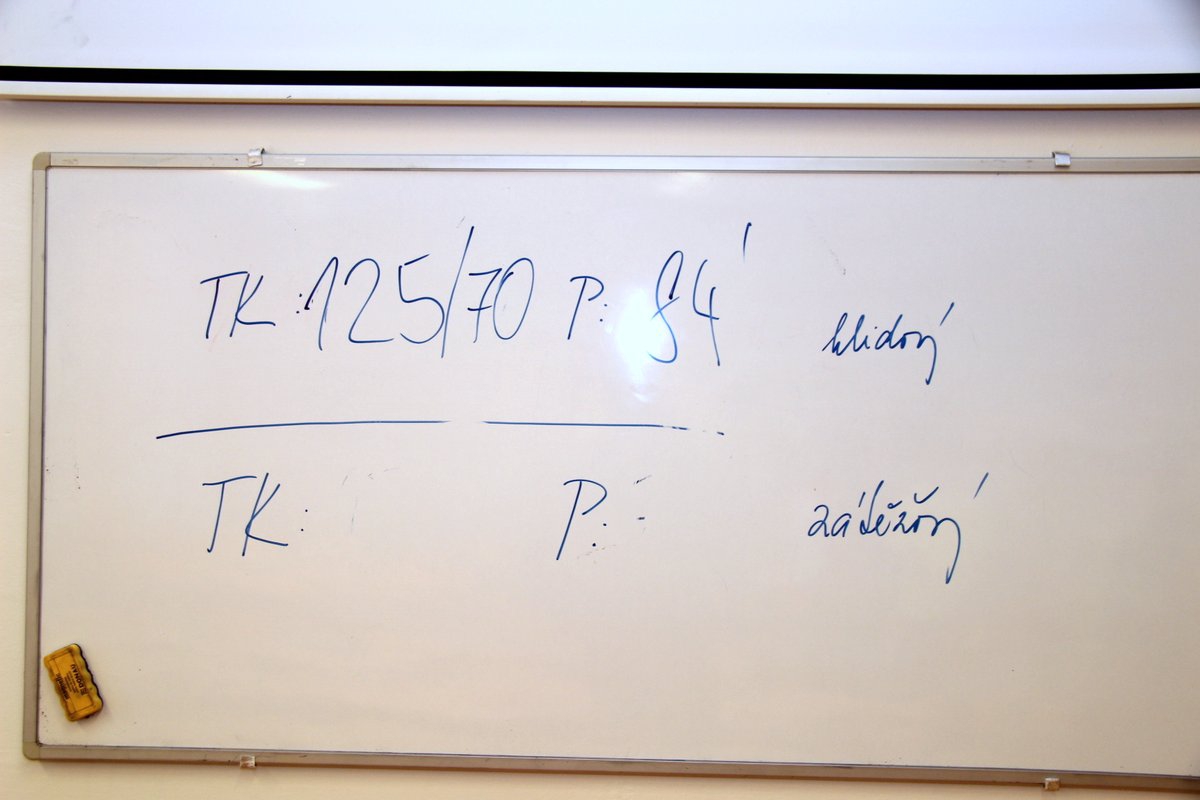 TK: 125/70 P: 84'
klidový
TK: P:
zátěžový
DONAU